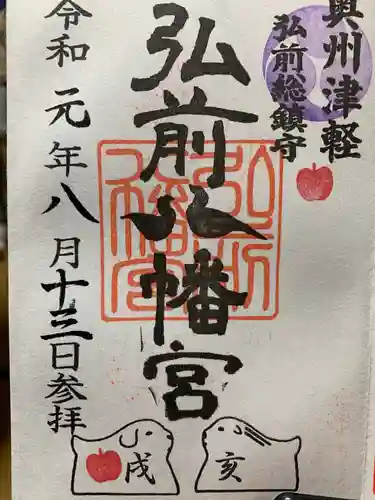 奥州津軽
弘前総鎮守
弘前八幡宮
弘前八幡宮
令和元年八月十三日参拝
戌
亥